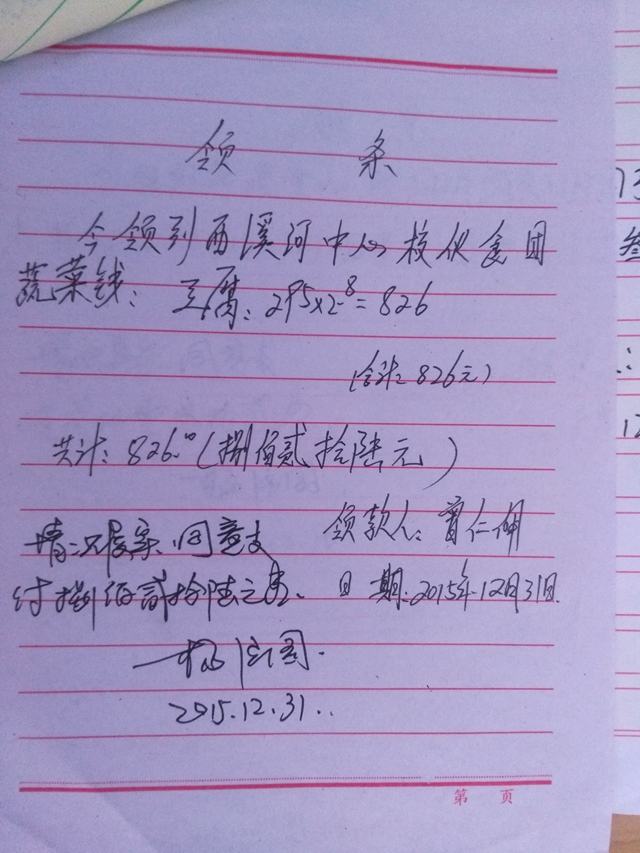 领 条
今领到西溪河中心校伙食团
蔬菜钱：豆腐：295×2.8=826
(合计：826元)
共计：826.00(捌佰贰拾陆元)
领款人：
情况属实，同意支
付捌佰贰拾陆元
日 期：2015年12月31日
2015.12.31.
第 页